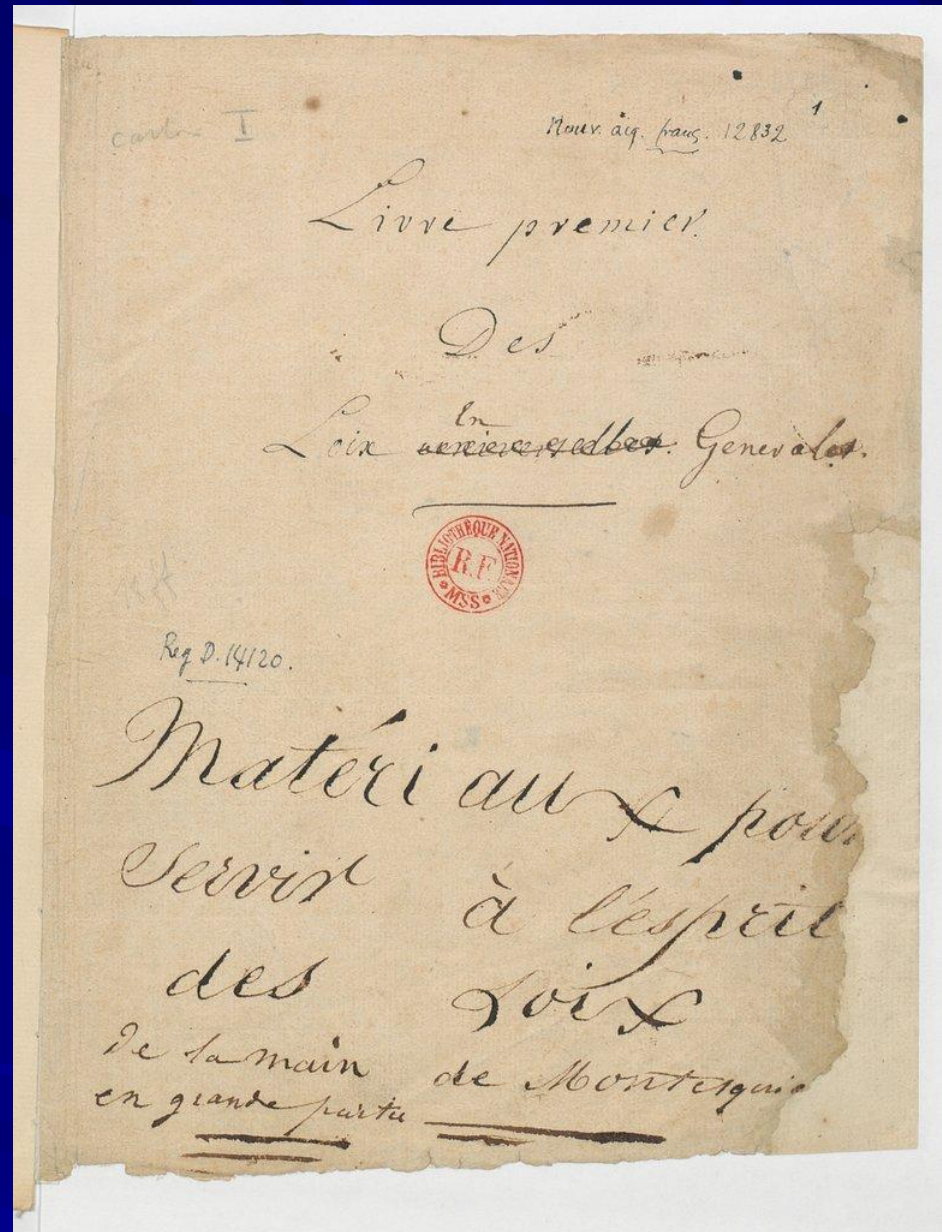 carton I
Nouv. acq. franç. 12832
1
Livre premier.
Des
En
Loix universelles. Generales.
BIBLIOTHEQUE NATIONALE
R.F.
MSS
Reg D. 14120.
Matériaux pour
servir à l'esprit
des Loix
de la main de Montesquie
en grande partie